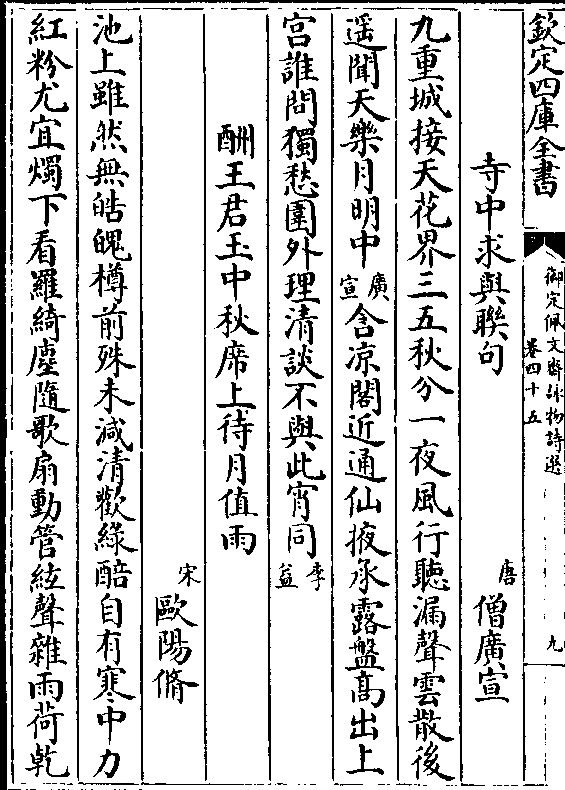 欽定四庫全書
御定佩文齋詠物詩選
卷四十五
九
寺中求與聯句
唐
僧廣宣
九重城接天花界三五秋分一夜風行聽漏聲雲散後
遥聞天樂月明中廣宣含凉閣近通仙掖承露盤高出上
宫誰問獨愁圍外理清談不與此宵同李益
酬王君玉中秋席上待月值雨
宋
歐陽脩
池上雖然無皓魄樽前殊未減清歡綠醅自有寒中力
紅粉尤宜燭下看羅綺塵隨歌扇動管絃聲雜雨荷乾